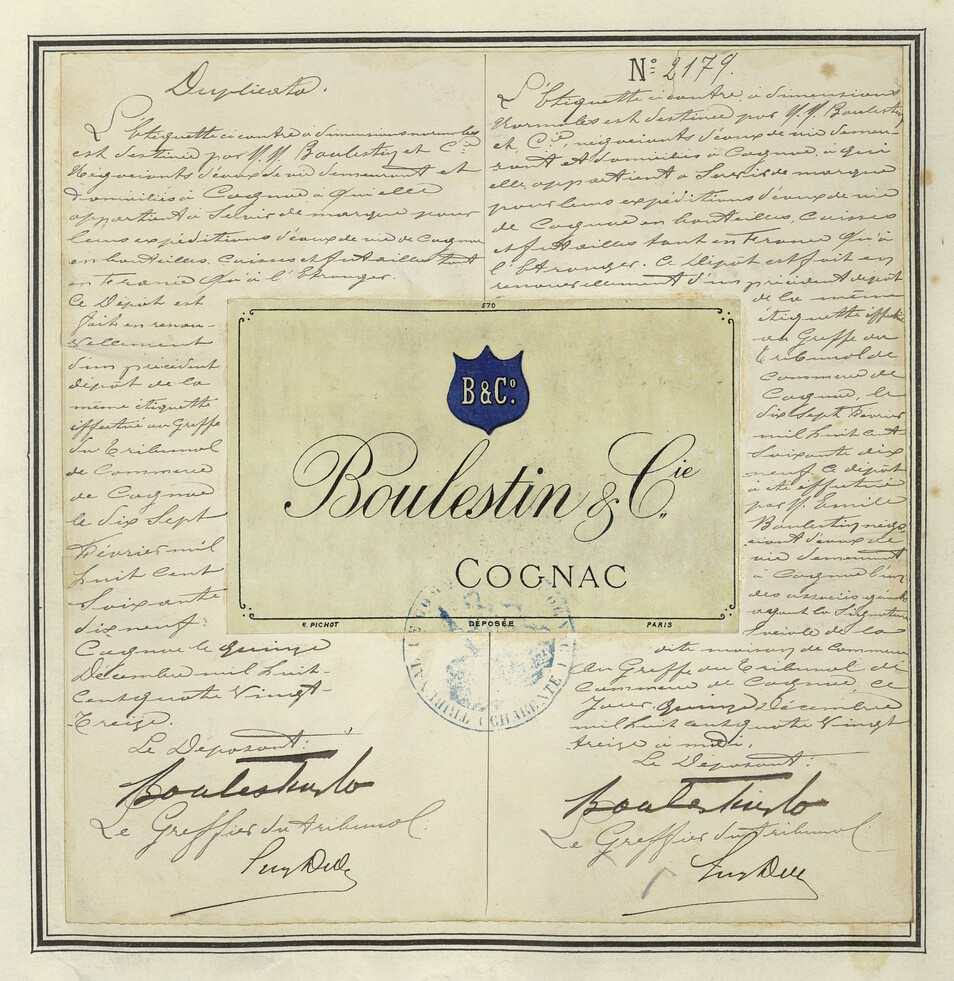 Duplicata.
L'Etiquette ci contre à dimensions normales
est destinée par M.M. Boulestin et Cie
Négociants d'eaux de vie demeurant et
domiciliés à Cognac à qui elle
appartient à Servir de marque pour
leurs expéditions d'eaux de vie de Cognac
en bouteilles, Caisses et futailles tant
en France qu'à l'Etranger.
Ce Dépôt est
fait en renou-
vellement
d'un précédent
dépôt de la
même étiquette
effectué au Greffe
du Tribunal
de Commerce
de Cognac
le dix Sept
Février mil
huit cent
Soixante
dix neuf.
Cognac le quinze
Décembre mil huit-
cent quatre Vingt-
Treize.
Le Déposant:
Le Greffier du tribunal.
No: 2179.
L'Etiquette ci contre, à dimensions
Normales est destinée par M.M. Boulestin
et Cie, négociants d'eaux de vie demeu-
rant et domiciliés à Cognac, à qui
elle appartient à Servir de marque
pour leurs expéditions d'eaux de vie
de Cognac en bouteilles, Caisses
et futailles tant en France qu'à
l'étranger. Ce Dépôt est fait en
renouvellement d'un précédent dépôt
de la même
étiquette effectué
au Greffe du
Tribunal de
Commerce de
Cognac, le
dix Sept Février
mil huit cent
Soixante dix
neuf. Ce dépôt
a été effectué
par M. Emile
Boulestin négo-
ciant d'eaux de
vie demeurant
à Cognac l'un
des associés
ayant la Signature
Sociale de la
dite maison de Commerce
Au Greffe du Tribunal de
Commerce de Cognac, ce
Jour quinze Décembre
mil huit cent quatre Vingt
treize à midi.
Le Déposant:
Le Greffier du Tribunal
570
B & Co.
Boulestin & Cie
COGNAC
H. PICHOT DÉPOSÉE PARIS
TRIBUNAL
CHARENTE